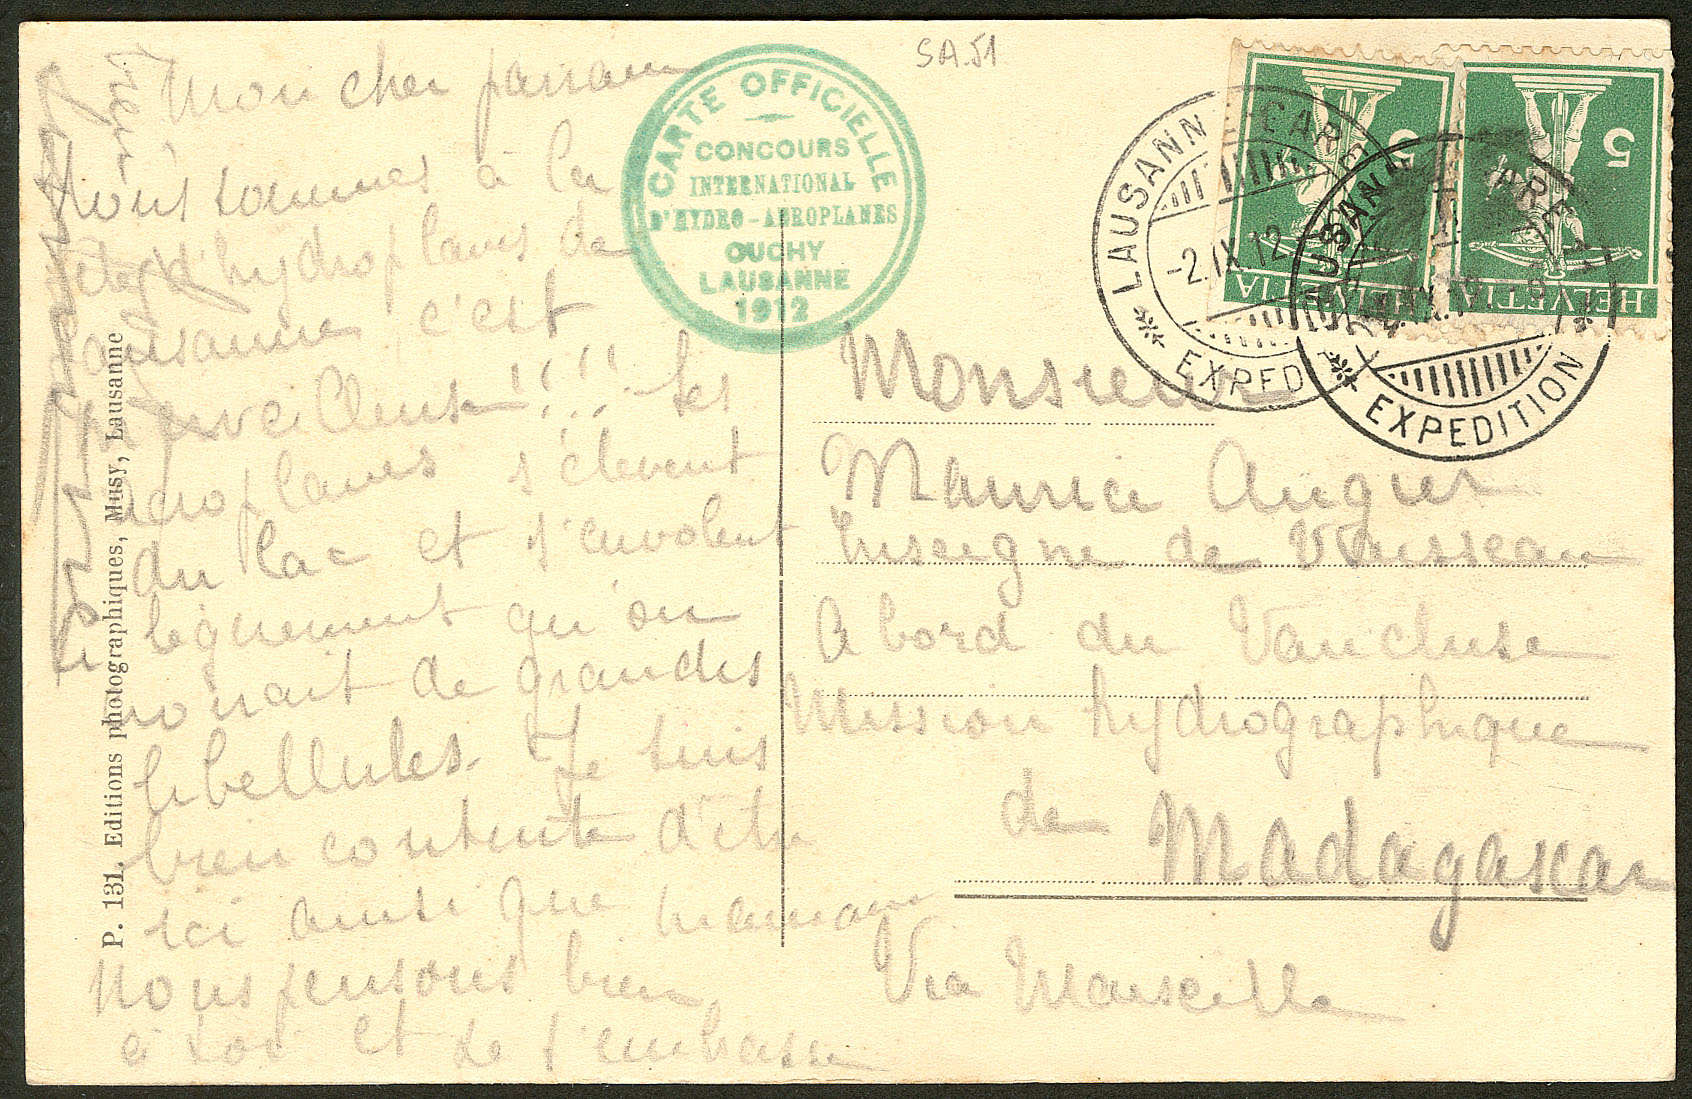 SA.51
Mon cher parrain
Nous sommes à la
fête d'hydroplanes de
Lausanne c'est
merveilleux!!! les
aeroplanes s'élèvent
du lac et s'envolent
légerement qu'on
dirait de grandes
libellules. Je suis
bien contente d'etre
ici ainsi que maman
Nous pensons bien
à toi et je t'embrasse
CARTE OFFICIELLE
CONCOURS
INTERNATIONAL
D'HYDRO-AEROPLANES
OUCHY
LAUSANNE
1912
P. 131. Editions photographiques, Musy, Lausanne
5
HELVETIA
5
HELVETIA
LAUSANNE GARE
-2.IX.12
EXPED
LAUSANNE GARE
EXPEDITION
Monsieur
Maurice Augier
Enseigne de Vaisseau
A bord du Vaucluse
Mission hydrographique
de
Madagascar
Via Marseille